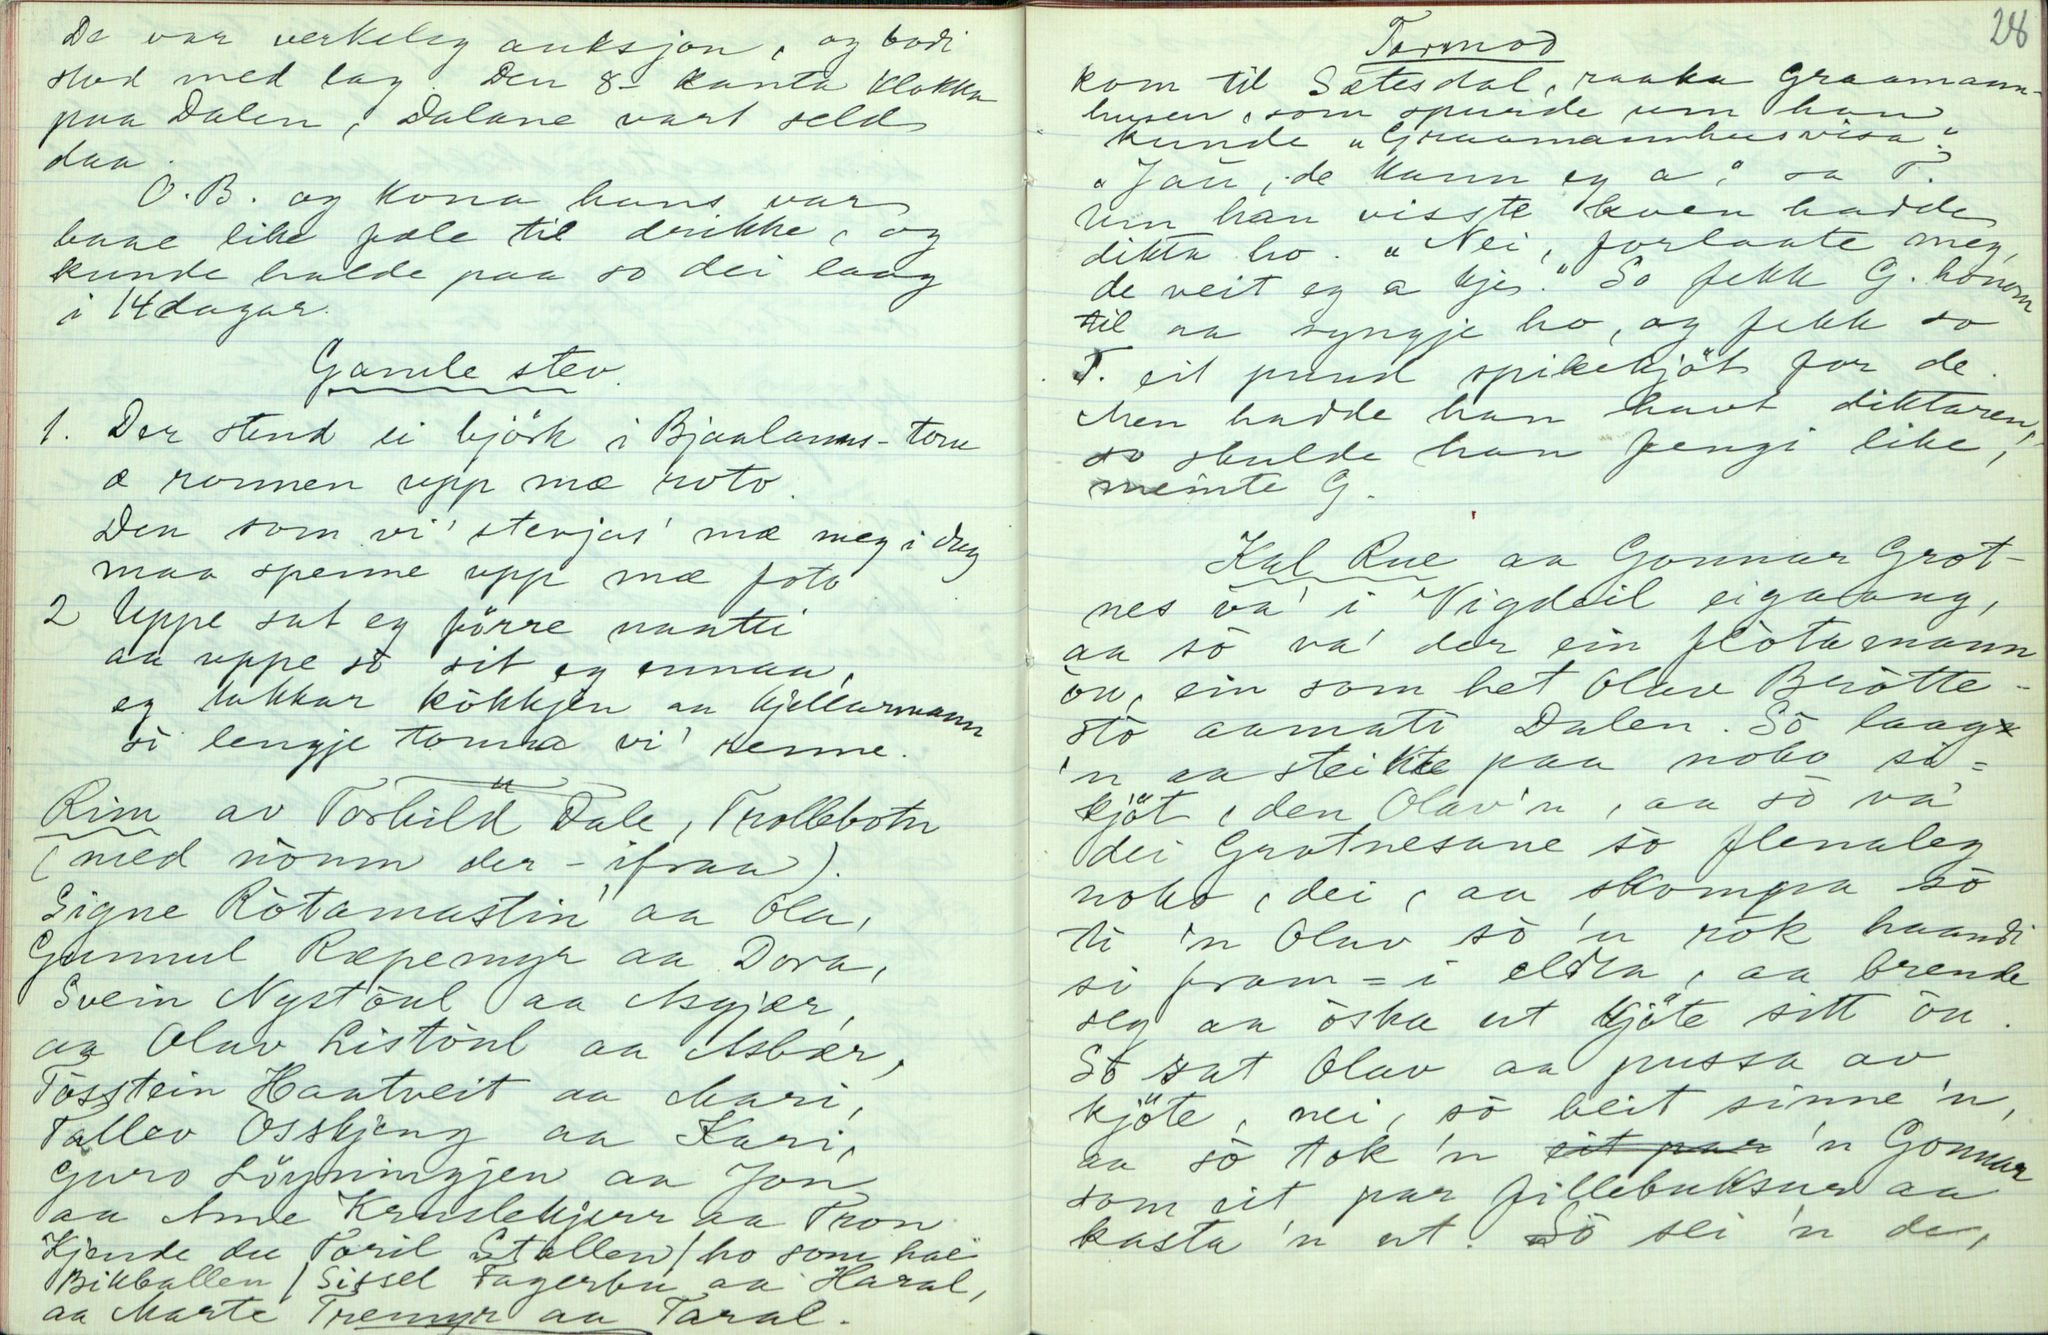 De var verkeleg auksjon, og bodi
stod med lag. Den 8-kanta klokka
paa Dalen, Dalane vart seld
daa.
O.B. og kona hans var
baae like fæle til drikke, og
kunde halde paa so dei laag
i 14 dagar.
Gamle stev.
1. Der stend ei björk i Bjaalanns-
æ ronnen upp mæ roto.
Den som vi' stevjas' mæ meg i dag
maa spenne upp mæ foto
2 Uppe sat eg förre naatti
aa uppe so sit eg ennaa,
eg takkar kökkjen aa kjellarmann
så lengje tonna vi' renne.
Rim av Torhild Dale, Trollebotn
(med nòunn der-ifraa).
Signe Ròtamastin aa Ola,
Gunnul Ræpemyr aa Dora,
Svein Nystòul aa Asgjær,
aa Olav Listòul aa Asbær,
Tòsstein Haatveit aa Mari,
Tallev Ossbjeng aa Kari,
Guro Löyningjen aa Jon
aa Anne Kruslekjerr aa Tron
Kjende du Toril Stallen / ho som hae
Bikballen / Sissel Fagerbu aa Haral,
aa Marte Tremyr aa Taral.
28
Tormod
kom til Sætesdal, raaka Graamann-
husen, som spurde um han
kunde "Graamannhusvisa".
"Jau, de kann eg a," sa T.
Um han visste kven hadde
dikta ho. "Nei, forlaate meg,
de veit eg a kje." So fekk G. honom
til aa syngje ho, og fekk so
T. eit pund spikekjöt for de.
Men hadde han havt diktaren,
so skulde han fengi like,
meinte G.
Kal Rue aa Gonnar Grot-
nes va' i Vigdeil eigaang,
aa sò va' der ein flòtamann
òu, ein som het Olav Bròtte-
stò aamati Dalen. Sò laag
'n aa steikte paa noko si-
kjöt, den Olav'n, aa sò va'
dei Grotnesane sò flenaleg
noko, dei, aa skompa sò
ti 'n Olav sò 'n rok haandi
si fram-i elden, aa brende
seg aa òska ut kjöte sitt òu.
Sò sat Olav aa pussa av
kjöte, nei, sò beit sinne 'n,
aa sò tok 'n eit par 'n Gonnar
som eit par fillebuksur aa
kasta 'n ut. Sò sei 'n de,